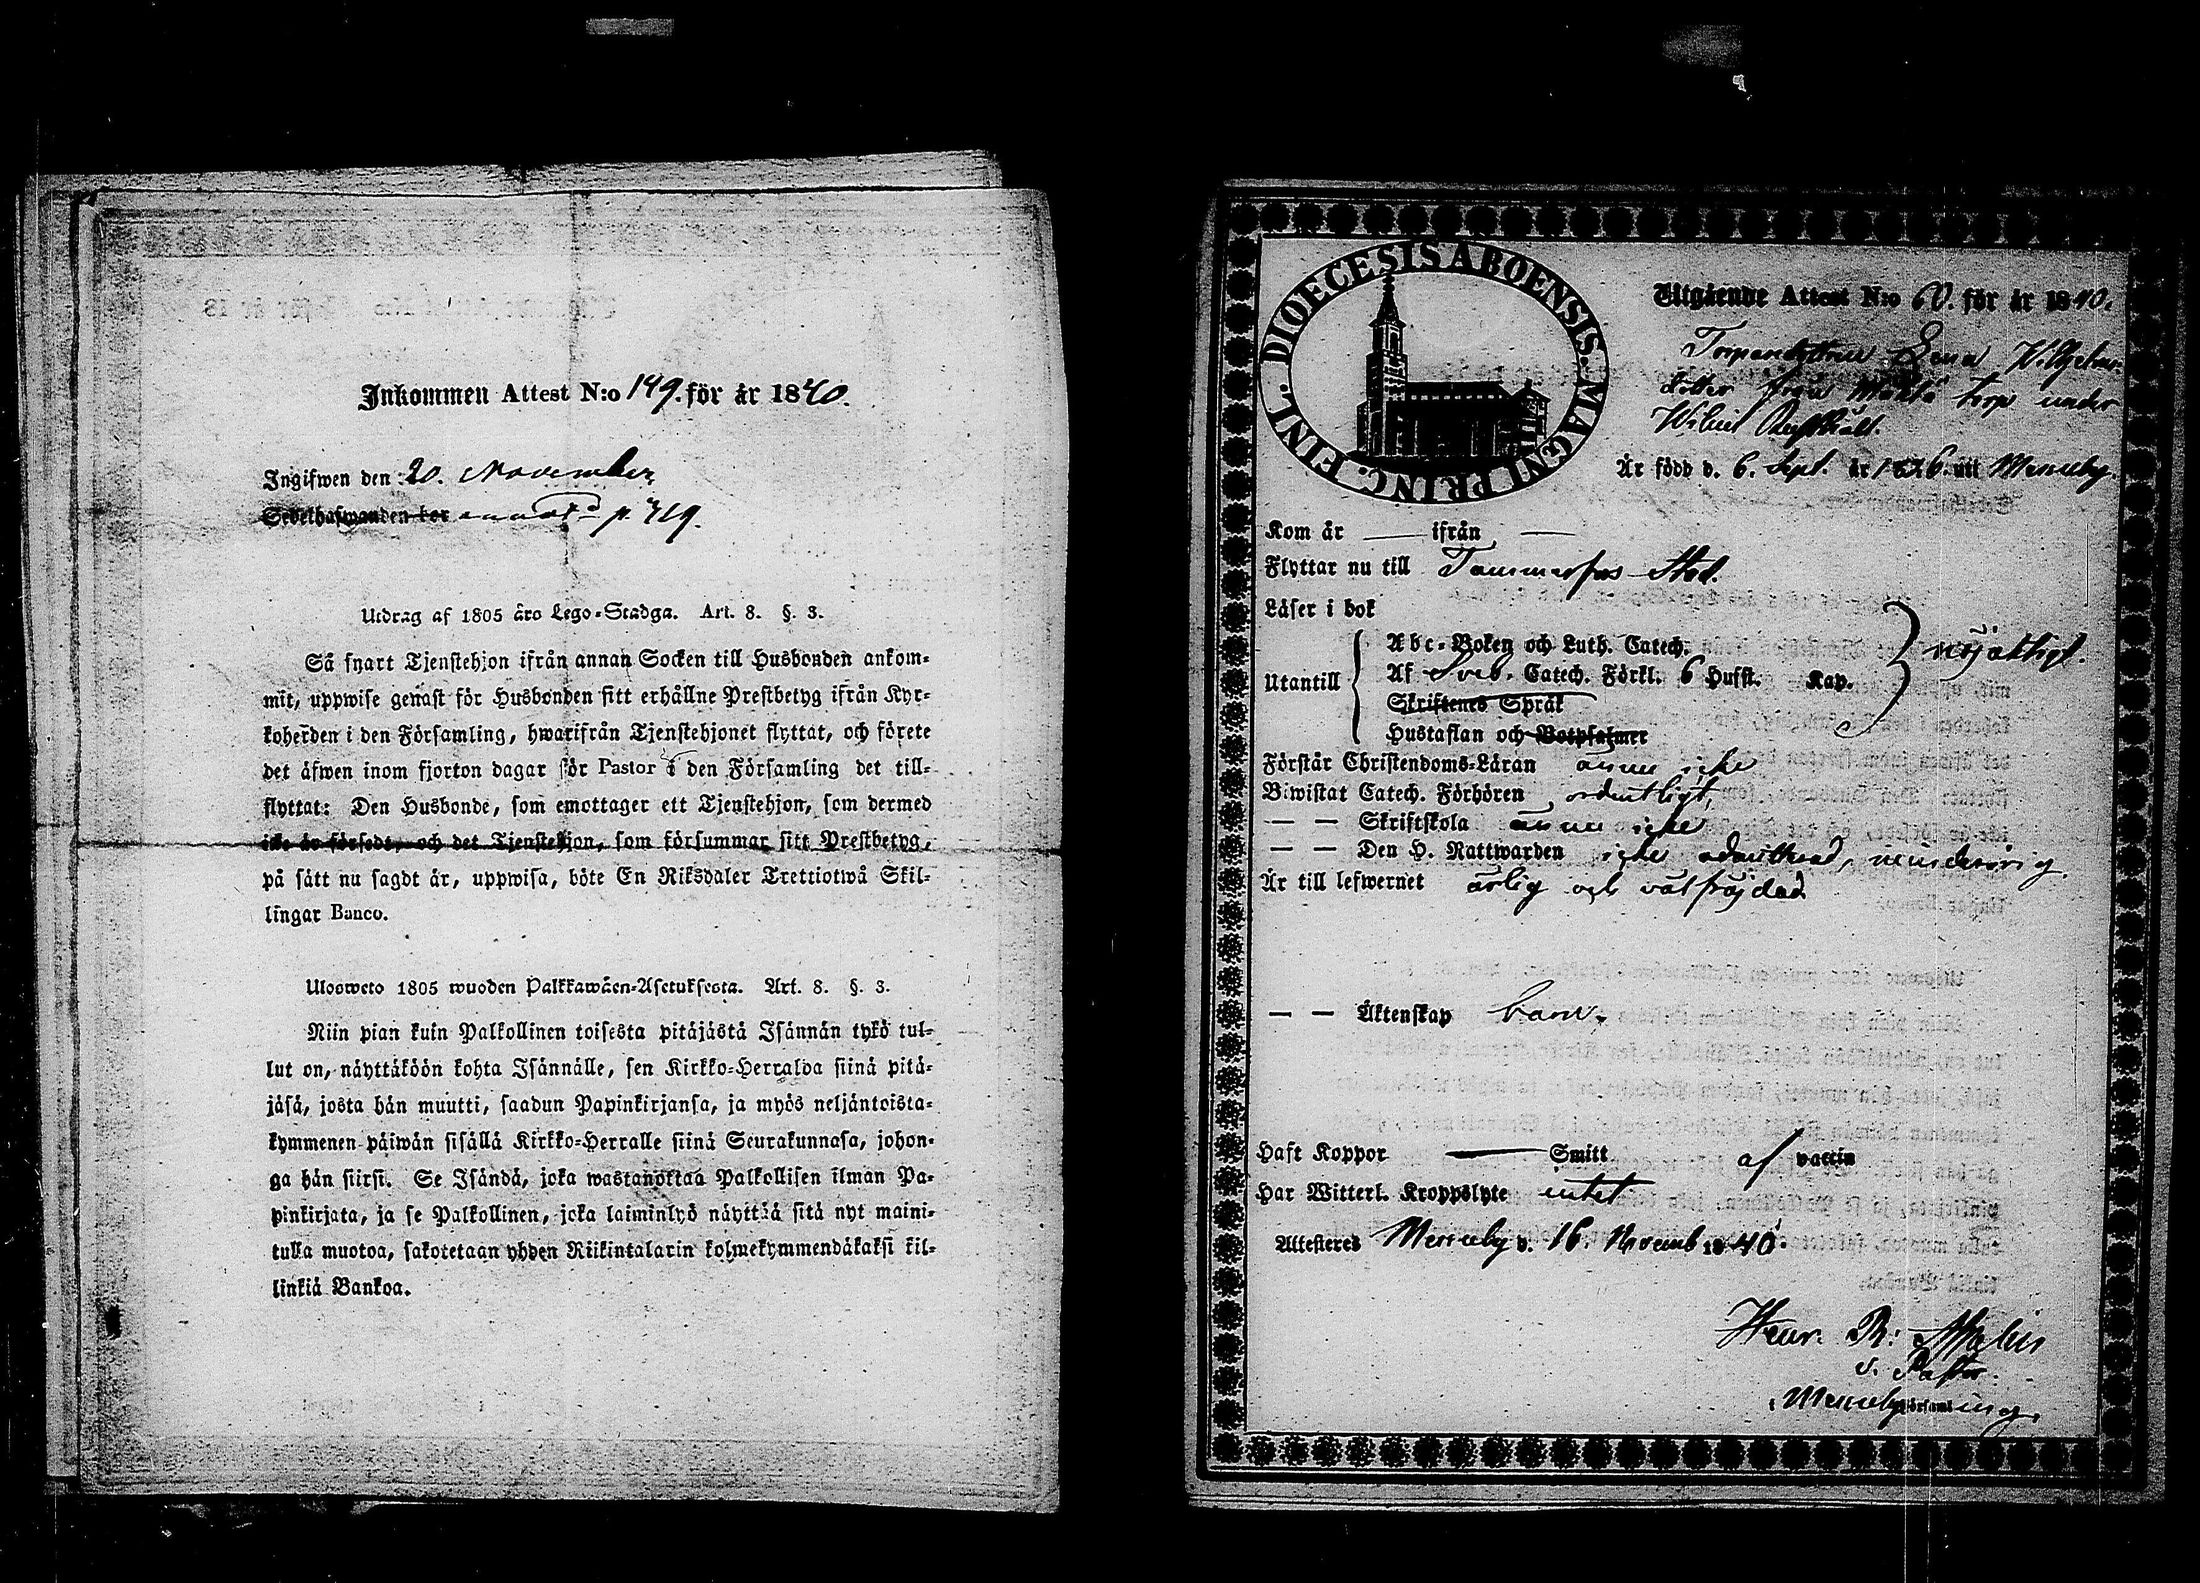 Inkommen Attest N:o 149. för år 1840.
Ingifwen den 20. November
Sedelhafwanden bor annot:d p. 719.
Utdrag af 1805 års Lego-Stadga. Art. 8. §. 3.
Så snart Tjenstehjon ifrån annan Socken till Husbonden ankom-
mit, uppwise genast för Husbonden sitt erhållne Prestbetyg ifrån Kyr-
koherden i den Församling, hwarifrån Tjenstehjonet flyttat, och förete
det äfwen inom fjorton dagar för Pastor i den Församling det till-
flyttat: Den Husbonde, som emottager ett Tjenstehjon, som dermed
icke är försedt, och det Tjenstehjon, som försummar sitt Prestbetyg,
på sätt nu sagdt är, uppwisa, böte En Riksdaler Trettiotwå Skil-
lingar Banco.
Ulosweto 1805 wuoden Palkkawäen-Asetuksesta. Art. 8. §. 3.
Niin pian kuin Palkollinen toisesta pitäjästä Isännän tykö tul-
lut on, näyttäköön kohta Isännälle, sen Kirkko-Herralda siinä pitä-
jäsä, josta hän muutti, saadun Papinkirjansa, ja myös neljäntoista-
kymmenen päiwän sisällä Kirkko-Herralle siinä Seurakunnasa, johon-
ga hän siirsi. Se Isändä, joka wastanottaa Palkollisen ilman Pa-
pinkirjata, ja se Palkollinen, joka laiminlyö näyttää sitä nyt maini-
tulla muotoa, sakotetaan yhden Riikintalarin kolmekymmendäkaksi kil-
linkiä Bankoa.
DIOECESIS ABOENSIS. MAGNI PRINC. FINL.
Utgående Attest N:o 60. för år 1840.
Torparedottren Lena Wilhelms
dotter från torp under
Rusthåll.
Är född d. 6. Sept. år 1826. uti Messuby.
Kom år — ifrån —
Flyttar nu till Tammerfors Stad.
Läser i bok
Utantill
Abc-Boken och Luth. Catech.
Af Sveb. Catech. Förkl. 6 Hufst. Kap.
Skriftenes Språk
Hustaflan och Botpsalmer
nöjaktigt.
Förstår Christendoms-Läran ännu icke
Biwistat Catech. Förhören ordentligt,
— — Skriftskola ännu icke
— — Den H. Nattwarden icke admitterad, minderårig.
Är till lefwernet ärlig och välfrejdad
— — Äktenskap barn.
Haft Koppor — Smitt af vaccin
Har Witterl. Kroppslyte intet
Attesteres Messuby d. 16. Novemb 1840.
Henr. R:
v. Pastor.
i Messuby församling.